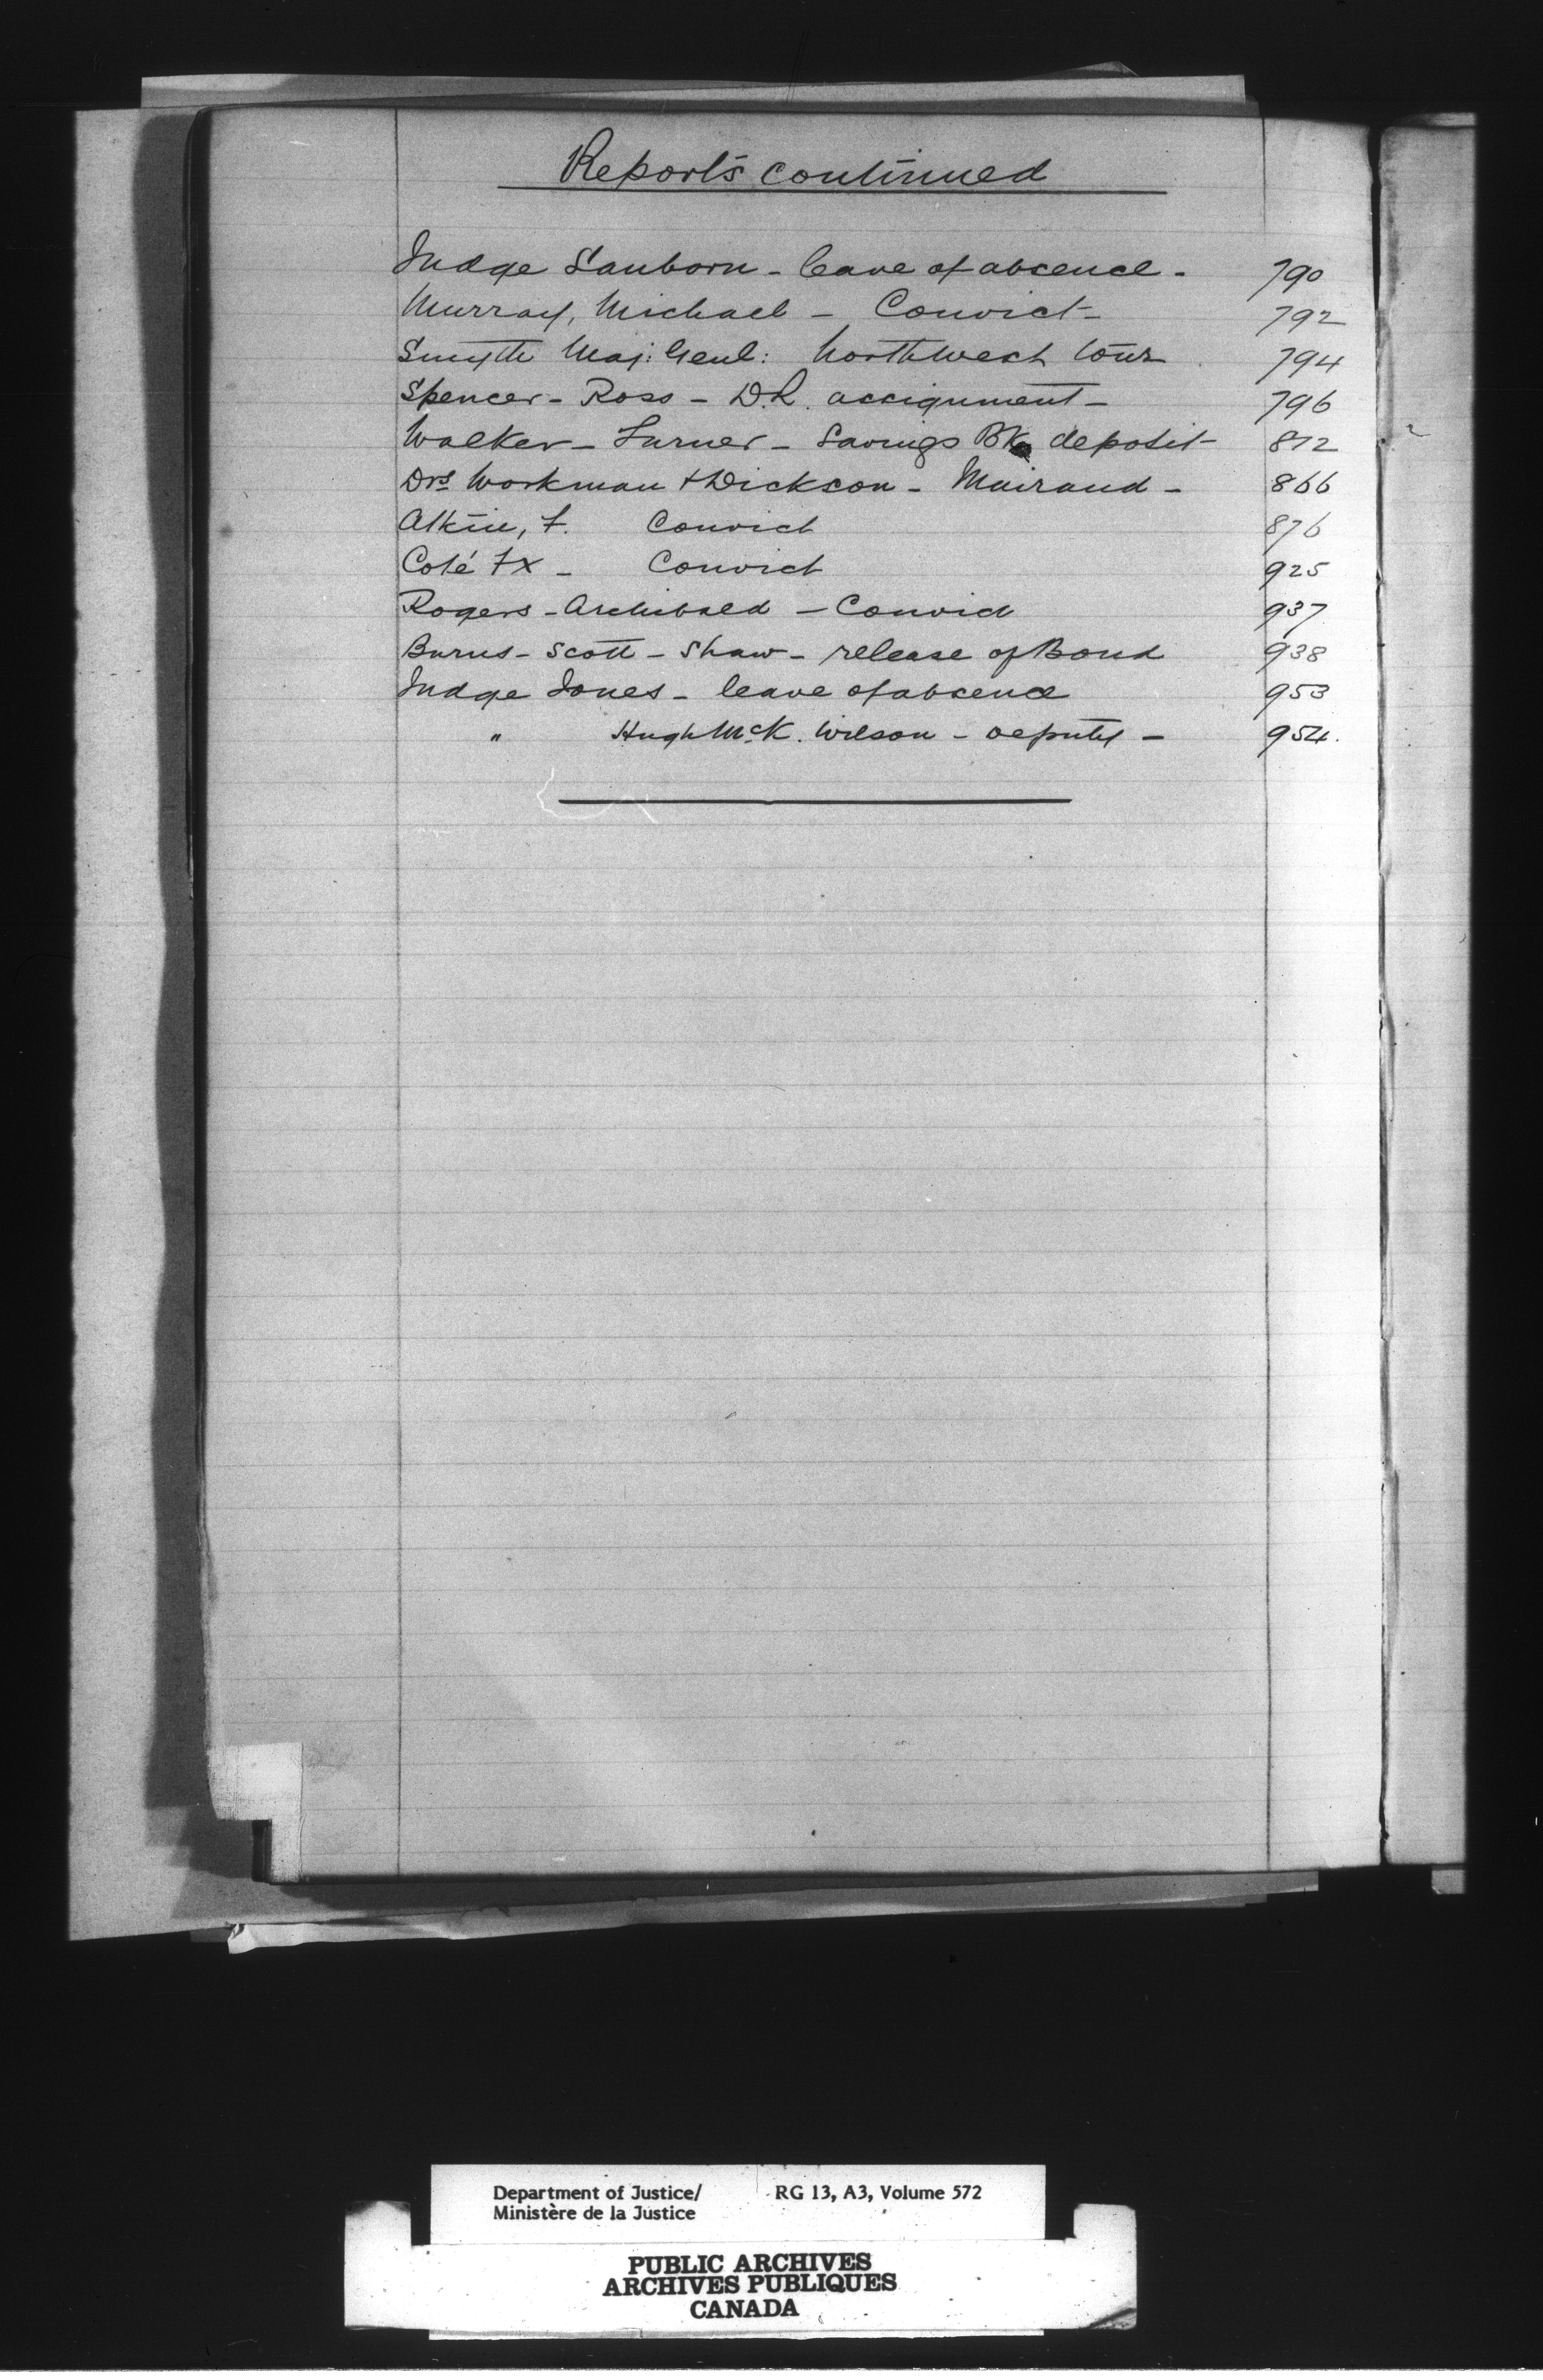 Reports continued
Judge Sanborn - leave of absence - 790
Murray, Michael - Convict - 792
Smyth Maj: Genl: Northwest tour 794
Spencer - Ross - D.L. assignment - 796
Walker - Turner - Savings Bk deposit 812
Drs Workman & Dickson - Mairand - 866
Atkin, F. Convict 876
Coté FX - Convict 925
Rogers - Archibald - Convict 937
Burns - Scott - Shaw - release of Bond 938
Judge Jones - leave of absence 953
" Hugh McK. Wilson - deputy - 954.
Department of Justice/ RG 13, A3, Volume 572
Ministère de la Justice
PUBLIC ARCHIVES
ARCHIVES PUBLIQUES
CANADA